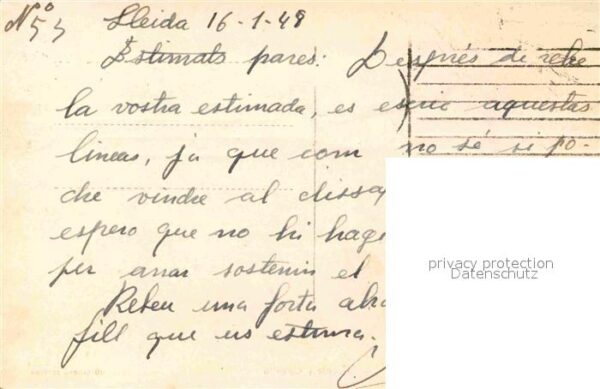 Nº 53 Lleida 16-1-49
Estimats pares: Després de rebe
la vostra estimada, es escric aquestas
lineas, ja que com no sé si po-
dre vindre al dissa
espero que no hi hage
per anar sostenin el
Rebeu una forta abra
fill que us estima.
privacy protection
Datenschutz